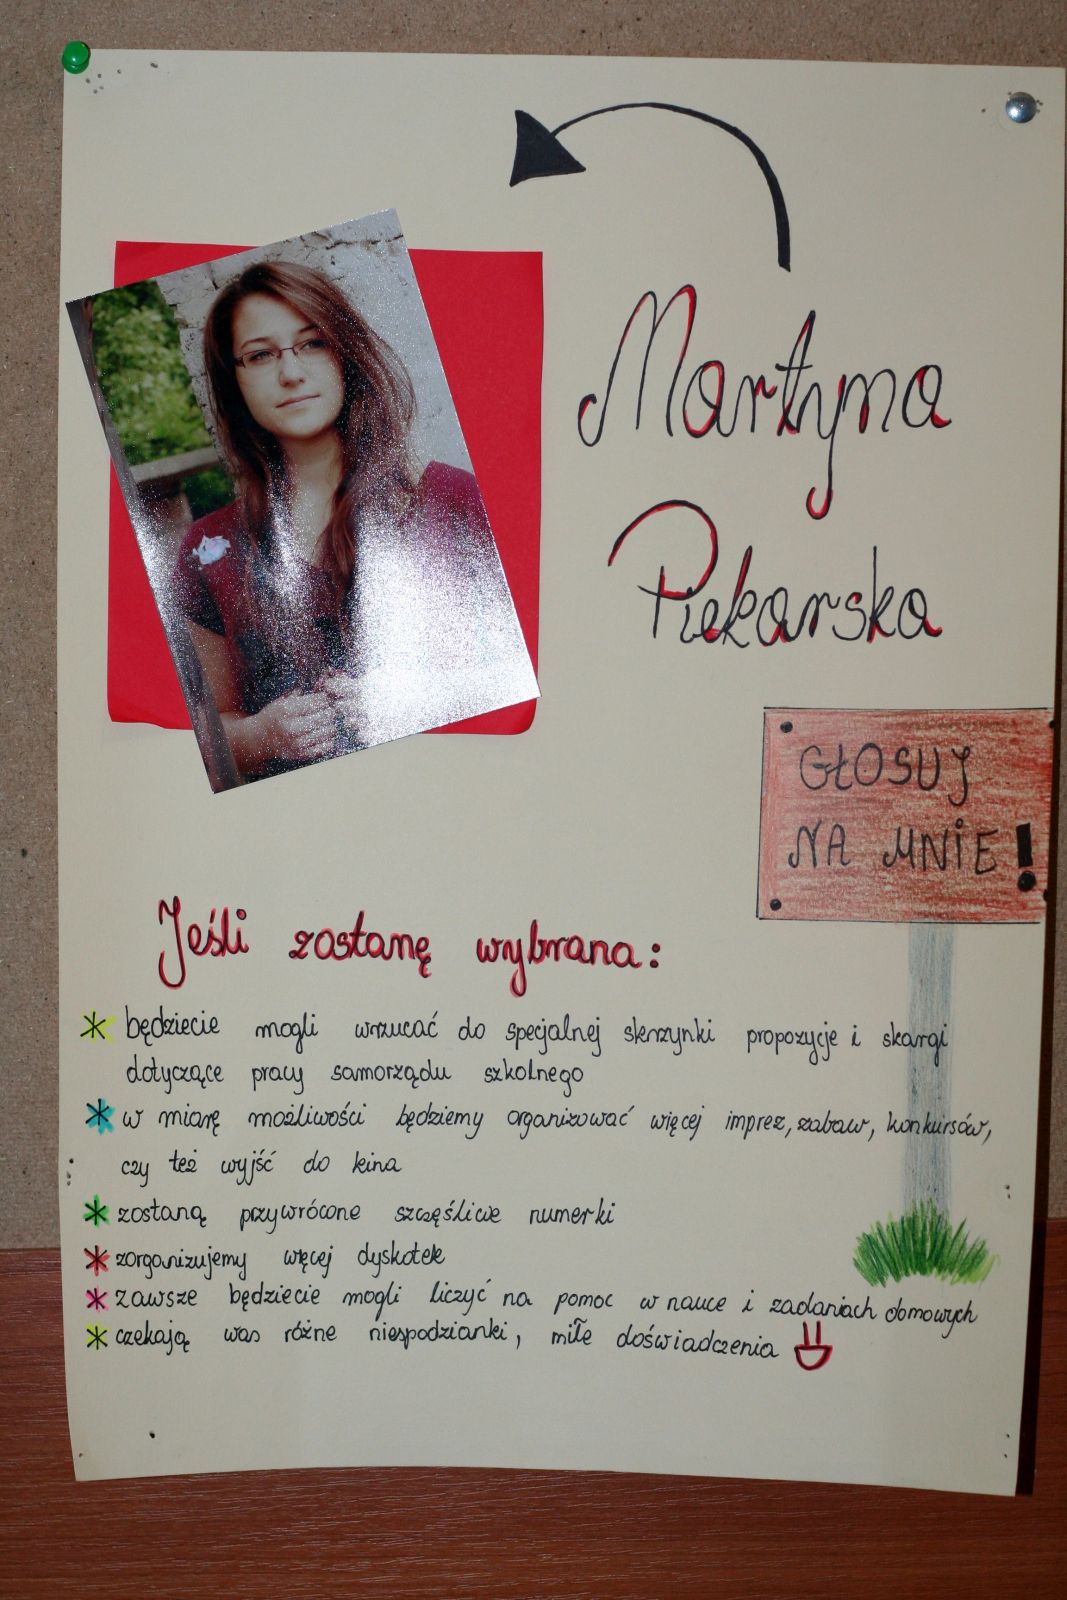 Martyna
Piekarska
GŁOSUJ
NA MNIE!
Jeśli zostanę wybrana:
* będziecie mogli wrzucać do specjalnej skrzynki propozycje i skargi
dotyczące pracy samorządu szkolnego
* w miarę możliwości będziemy organizować więcej imprez, zabaw, konkursów,
czy też wyjść do kina
* zostaną przywrócone szczęśliwe numerki
* zorganizujemy więcej dyskotek
* zawsze będziecie mogli liczyć na pomoc w nauce i zadaniach domowych
* czekają was różne niespodzianki, miłe doświadczenia